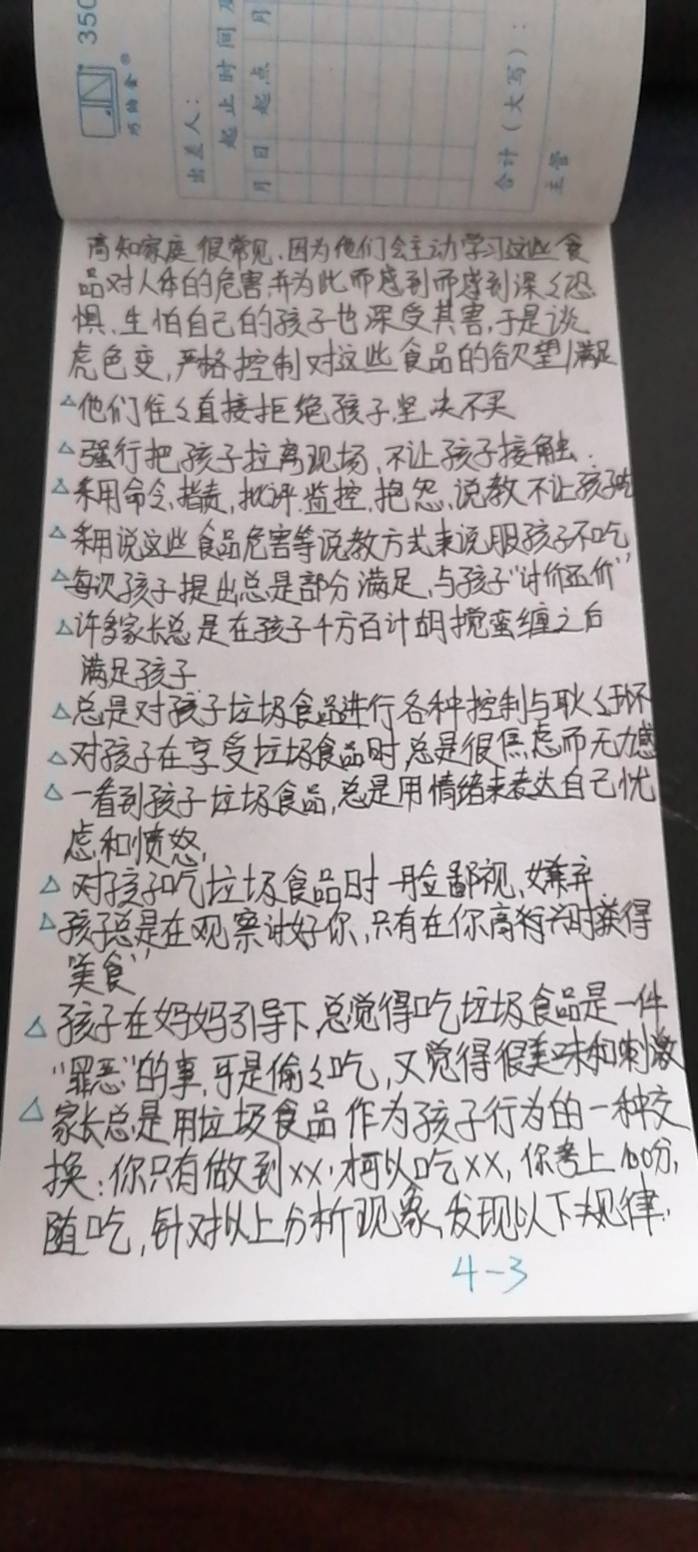 350
巧的金®
出差人：
起止时间及
月 日 起点 月
合计（大写）：
主管
高知家庭很常见，因为他们会主动学习这些食
品对人体的危害，并为此而感到而感到深々恐
惧，生怕自己的孩子也深受其害，于是谈
虎色变，严格控制对这些食品的欲望/满足
△他们往々直接拒绝孩子，坚决不买
△强行把孩子拉离现场，不让孩子接触．
△采用命令，指责，批评，监控，抱怨，说教不让孩子吃
△采用说这些食品危害等说教方式来说服孩子不吃
△每次孩子提出总是部分满足，与孩子“讨价还价”
△许多家长总是在孩子千方百计胡搅蛮缠之后
满足孩子
△总是对孩子垃圾食品进行各种控制与耿々于怀
△对孩子在享受垃圾食品时总是很焦虑而无力感
△一看到孩子垃圾食品，总是用情绪来表达自己忧
虑和愤怒，
△对孩子吃垃圾食品时一脸鄙视，嫌弃
△孩子总是在观察讨好你，只有在你高兴时获得
“美食”
△孩子在妈妈引导下，总觉得吃垃圾食品是一件
“罪恶”的事，于是偷々吃，又觉得很美味和刺激
△家长总是用垃圾食品作为孩子行为的一种交
换：你只有做到xx，才可以吃xx，你考上100分，
随吃，针对以上分析现象，发现以下规律：
4-3